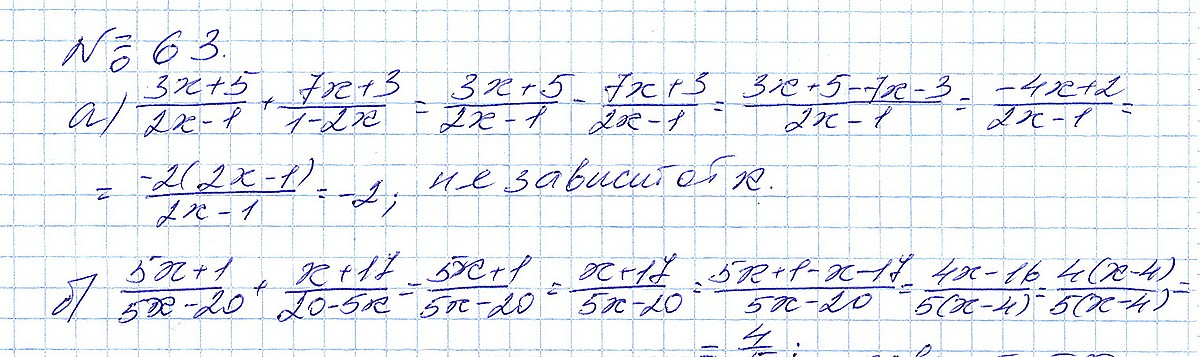 № 63.
а) (3x+5)/(2x-1) + (7x+3)/(1-2x) = (3x+5)/(2x-1) - (7x+3)/(2x-1) = (3x+5-7x-3)/(2x-1) = (-4x+2)/(2x-1) =
= (-2(2x-1))/(2x-1) = -2; не зависит от x.
б) (5x+1)/(5x-20) + (x+17)/(20-5x) = (5x+1)/(5x-20) = (x+17)/(5x-20) = (5x+1-x-17)/(5x-20) = (4x-16)/(5(x-4)) = (4(x-4))/(5(x-4)) =